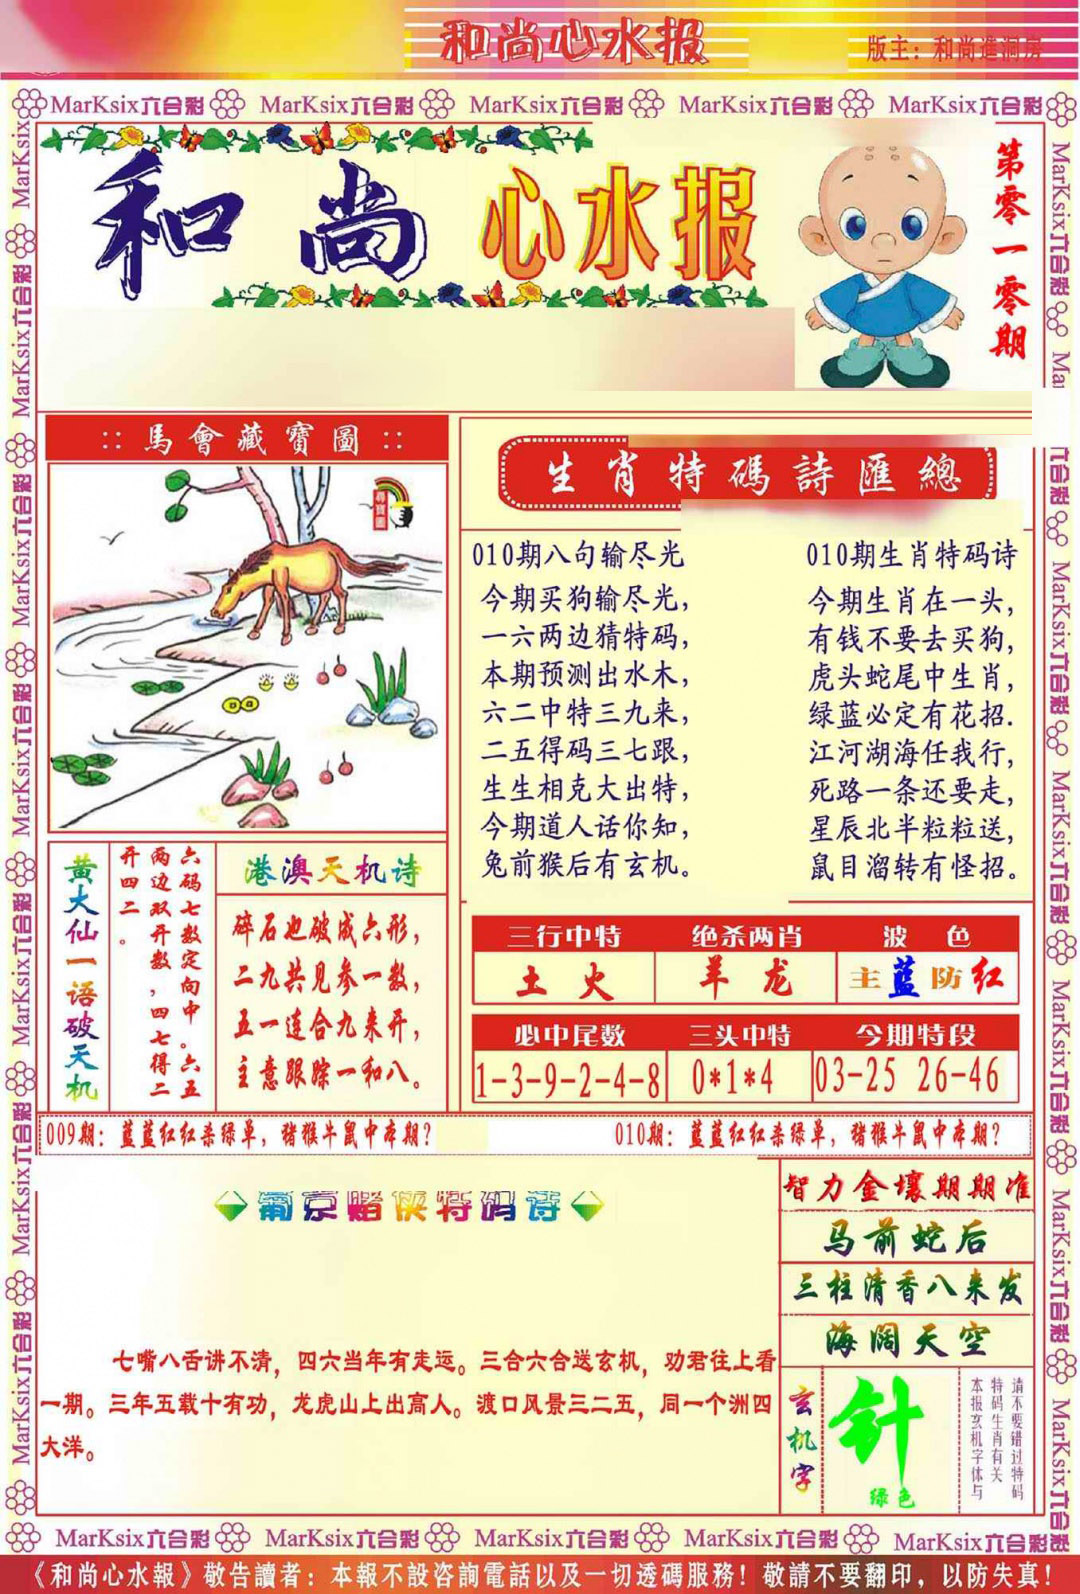 和尚心水报
版主：和尚進洞房
MarKsix六合彩 MarKsix六合彩 MarKsix六合彩 MarKsix六合彩 MarKsix六合彩
和尚 心水报
第零一零期
:: 馬會藏寶圖 ::
尋寶圖
生肖特碼詩匯總
010期八句输尽光
今期买狗输尽光，
一六两边猜特码，
本期预测出水木，
六二中特三九来，
二五得码三七跟，
生生相克大出特，
今期道人话你知，
兔前猴后有玄机。
010期生肖特码诗
今期生肖在一头，
有钱不要去买狗，
虎头蛇尾中生肖，
绿蓝必定有花招.
江河湖海任我行，
死路一条还要走，
星辰北半粒粒送，
鼠目溜转有怪招。
黄大仙一语破天机
六码七数定向中。六五
两边双开数，四七得二
开四二。
港澳天机诗
碎石也破成六形，
二九共见参一数，
五一连合九来开，
主意跟踪一和八。
三行中特 绝杀两肖 波色
土火 羊龙 主蓝防红
必中尾数 三头中特 今期特段
1-3-9-2-4-8 0*1*4 03-25 26-46
009期：蓝蓝红红杀绿单，猪猴牛鼠中本期？
010期：蓝蓝红红杀绿单，猪猴牛鼠中本期？
葡京赌侠特码诗
七嘴八舌讲不清，四六当年有走运。三合六合送玄机，劝君往上看
一期。三年五载十有功，龙虎山上出高人。渡口风景三二五，同一个洲四
大洋。
智力金壤期期准
马前蛇后
三柱清香八来发
海阔天空
玄机字
针
绿色
请不要错过特码
特码生肖有关
本报玄机字体与
MarKsix六合彩 MarKsix六合彩 MarKsix六合彩 MarKsix六合彩 MarKsix六合彩
《和尚心水報》敬告讀者：本報不設咨詢電話以及一切透碼服務！敬請不要翻印，以防失真！